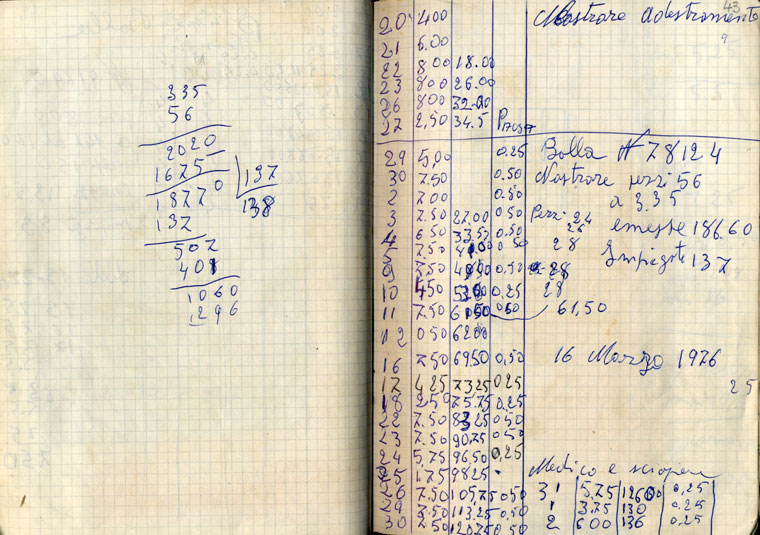 335
56
2020
1675
18770 137
137 138
507
401
1060
296
43
20 400 Mostrare adestramento
9
21 6.00
22 8.00 18.00
23 800 26.00
26 800 32.00
27 2,50 34.5 Pausa
29 5,00 0.25 Bolla N 78124
30 7.50 0.50 Nastrare pezzi 56
2 7.00 0.50 a 3.35
3 7.50 27.00 0 50 Pezzi 24 emesse 186.60
4 6 50 33.50 0.50 26
7.50 0 50 28 Impiegate 137
7.50 0,50 28
10 4.50 0,25 28
11 7.50 61,50
12 0 50 6200
16 7,50 69,50 0,50 16 Marzo 1976
17 4.25 73.25 0.25 25
18 2.50 75.75 0,25
22 7.50 83.25 0,50
23 7.50 90,75 0.50
24 5.75 96,50 0,25
25 1.75 98.25 Medico e sciopero
26 7.50 105,75 0,50 31 5.75 0,25
29 7.50 113.25 0,50 1 3.75 130 0.25
30 7.50 120.75 0,50 2 6 00 136 0.25